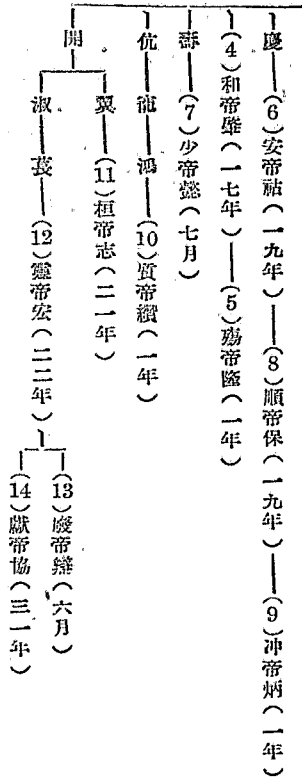 慶——(6)安帝祜(一九年)——(8)順帝保(一九年)——(9)冲帝炳(一年)
(4)和帝肇(一七年)——(5)殤帝隆(一年)
壽——(7)少帝懿(七月)
伉——寵——鴻——(10)質帝纘(一年)
開
翼——(11)桓帝志(二一年)
淑——萇——(12)靈帝宏(二二年)
(13)廢帝辯(六月)
(14)獻帝協(三一年)